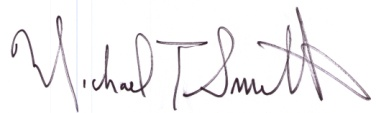 Michael T Smith